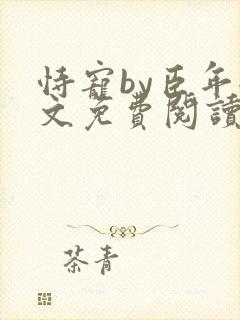 恃寵by臣年
文免費閱讀
茶青